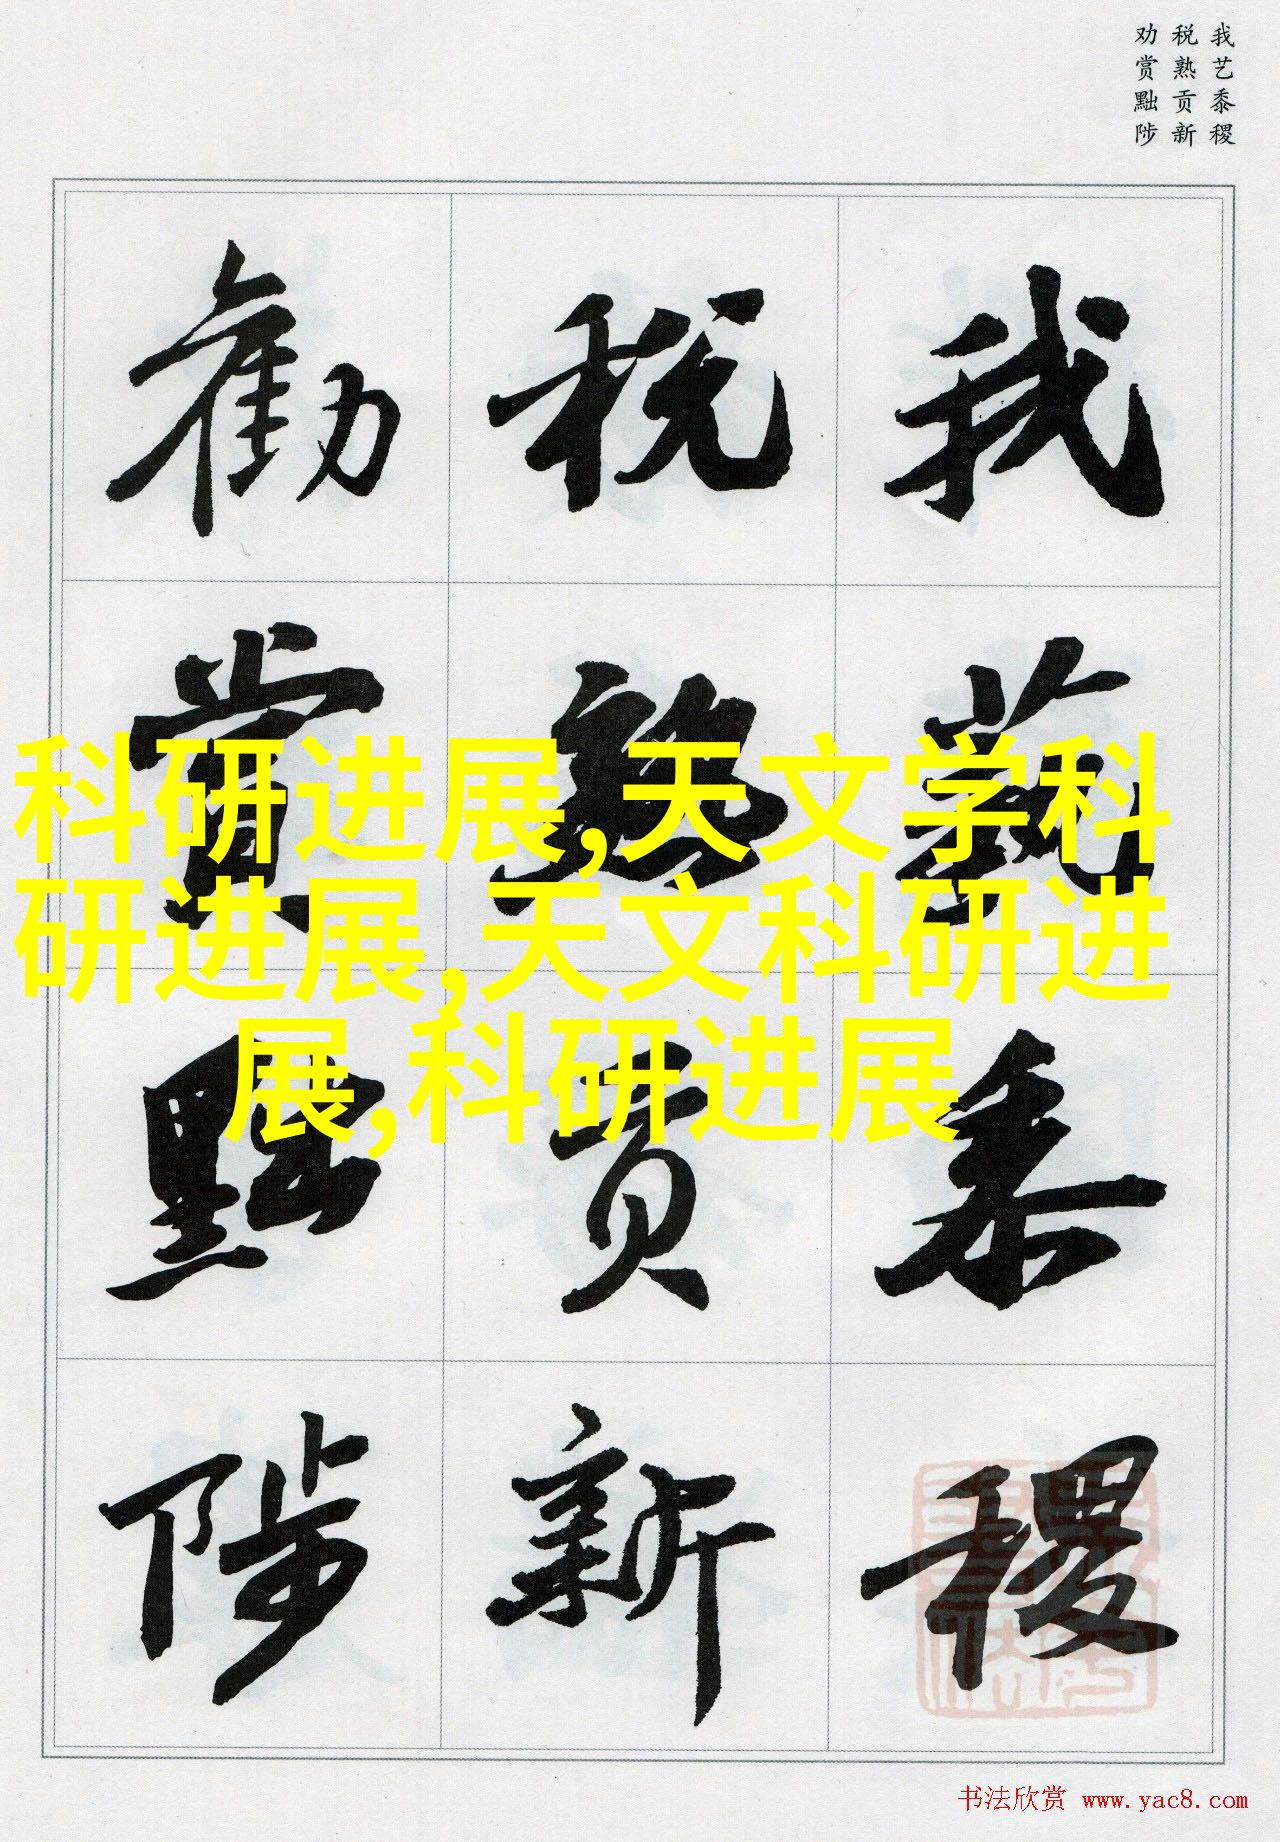 我艺黍稷
税熟贡新
劝赏黜陟
我藝黍稷
税熟贡新
勸賞黜陟
科研进展,天文学科
研进展,天文科研进
展,科研进展
书法欣赏 www.yac8.com